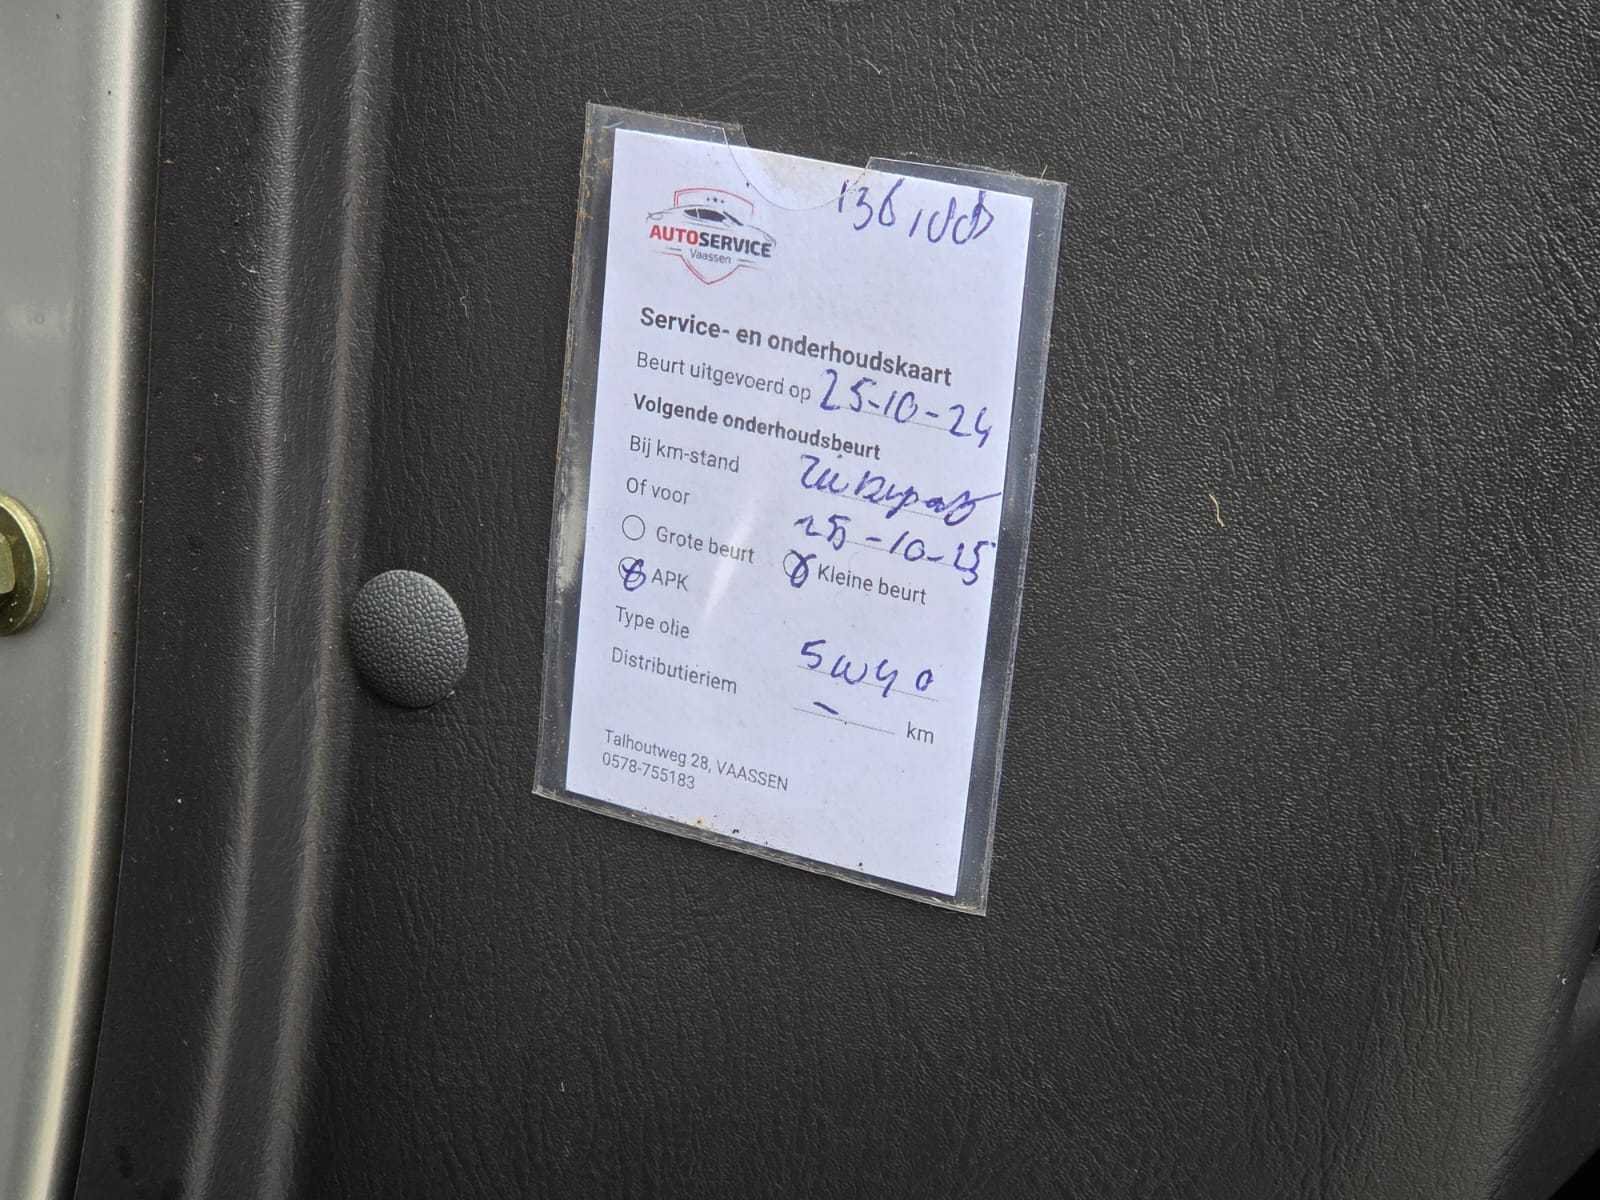 136100
AUTOSERVICE
Vaassen
Service- en onderhoudskaart
Beurt uitgevoerd op 25-10-24
Volgende onderhoudsbeurt
Bij km-stand
Of voor 25-10-25
Grote beurt Kleine beurt
APK
Type olie 5w40
Distributieriem - km
Talhoutweg 28, VAASSEN
0578-755183